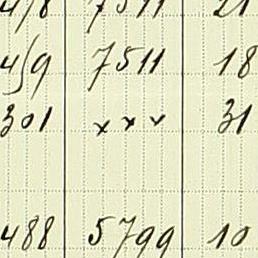 4/8 7511 21
4/9 7511 18
301 x x x 31
488 5799 10